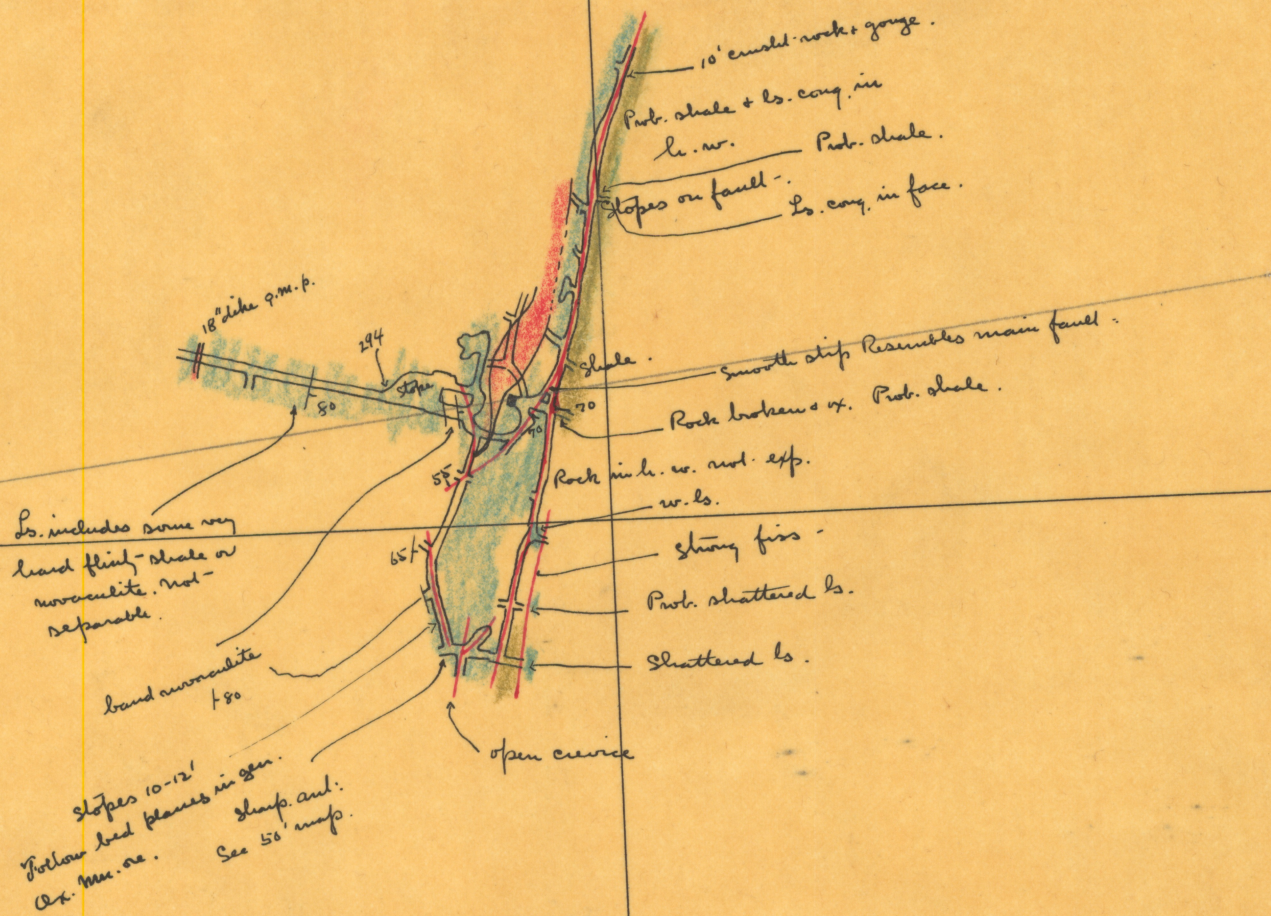 10' crushed rock + gouge.
Prob. shale + ls. cong. in
h. w.
Prob. shale.
Stopes on fault.
Ls. cong. in face.
18" dike q.m.p.
294
Stope
80
Shale.
Smooth slip Resembles main fault.
70
70
Rock broken + ox. Prob. shale.
55
Rock in h. w. not exp.
w. ls.
65
Strong fiss
Prob. shattered ls.
Shattered ls.
Ls. includes some very
hard flinty shale or
novaculite. Not
separable.
band novaculite
80
open crevice
Stopes 10-12'
Follow bed planes in gen.
Ox. Mn. ore.
Sharp. ant.
See 50' map.